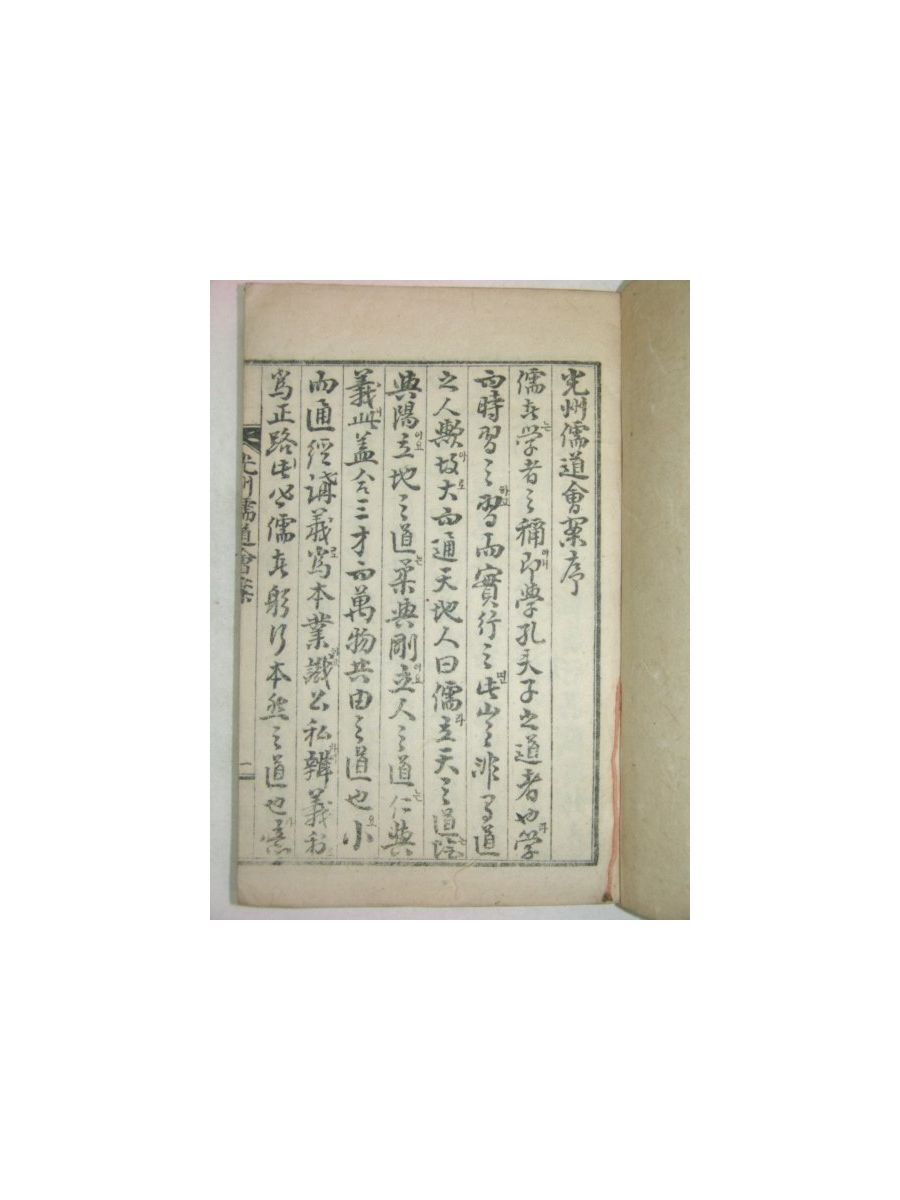 光州儒道會案序
儒者는学者之稱이니即學孔夫子之道者也라学
而時習之習하고而實行之면此豈非學道
之人歟아故로大而通天地人曰儒라立天之道는陰
與陽이요立地之道는柔與剛이요立人之道는仁與
義니此盖合三才而萬物共由之道也요小
而通經講義로爲本業하며識公私하며辨義利
爲正路此皆儒者躬行本然之道也라
光州儒道會案
一